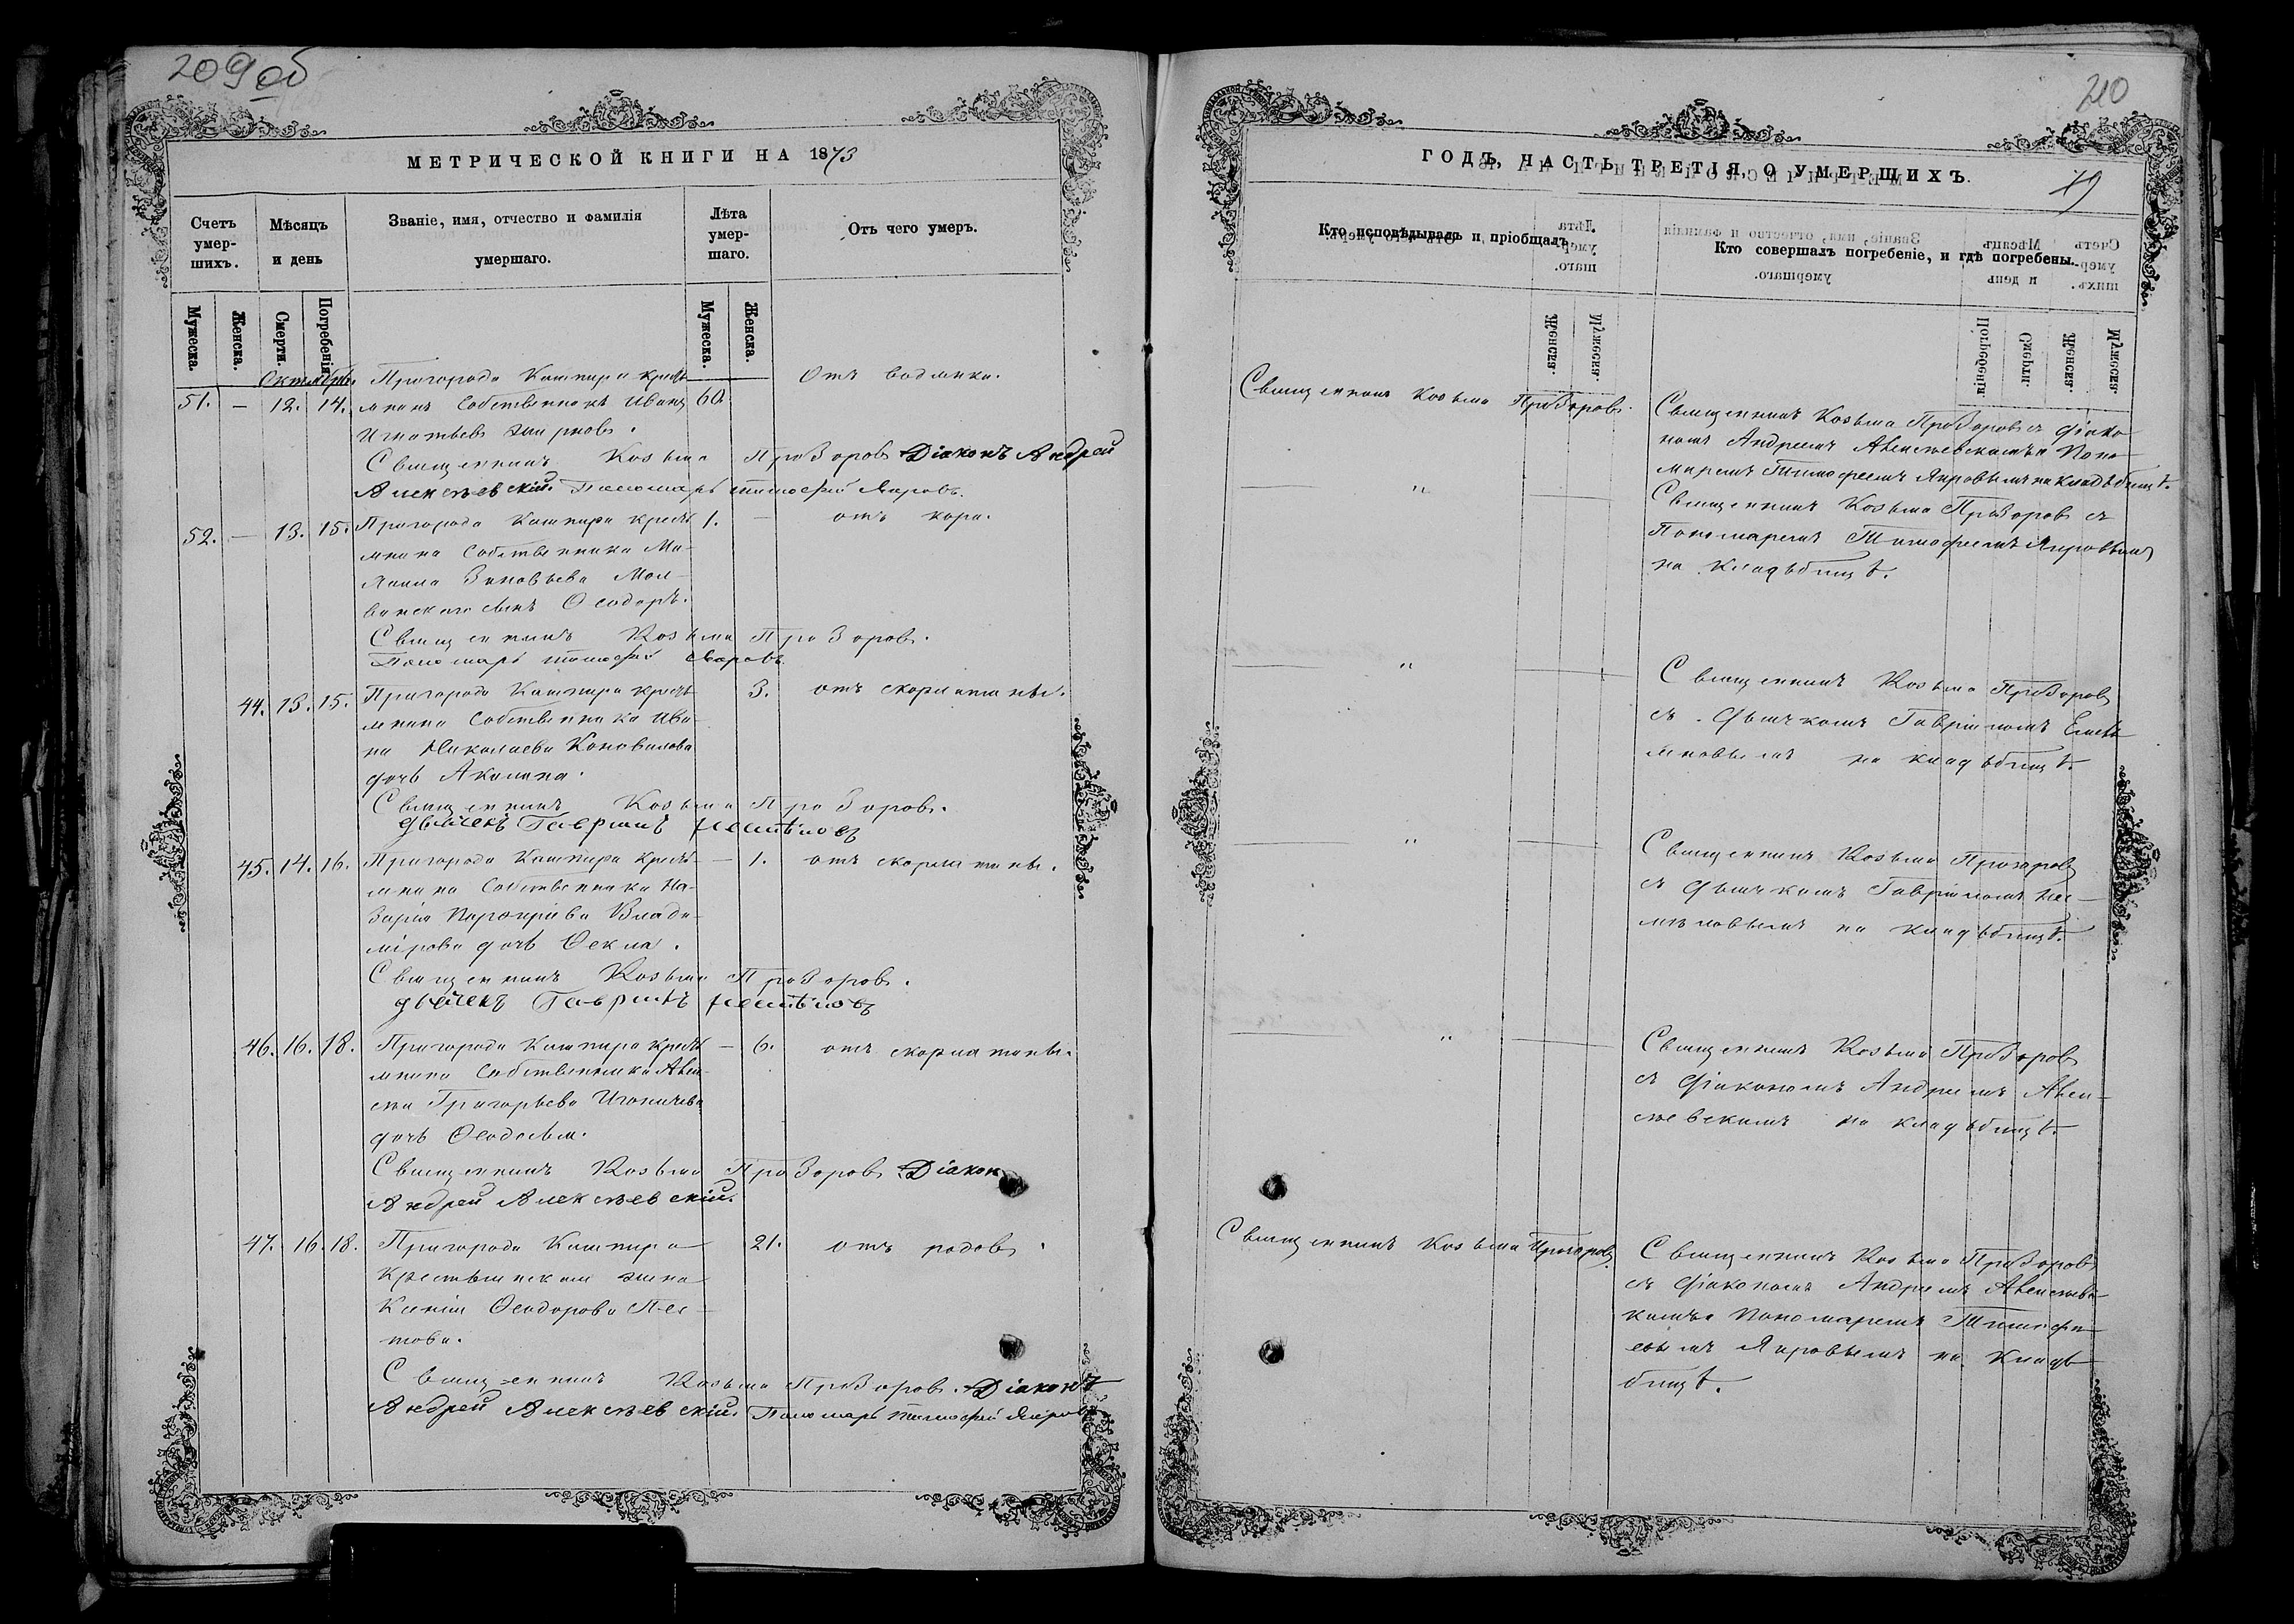 209 об
МЕТРИЧЕСКОЙ КНИГИ НА 1873
Счетъ умер-шихъ.
Мѣсяцъ и день
Званіе, имя, отчество и фамилія умершаго.
Лѣта умер-шаго.
Отъ чего умеръ.
Мужеска.
Женска.
Смерти.
Погребенія.
Мужеска.
Женска.
Октябрь.
Пригорода Кашпира кресть
Отъ водянки.
51. — 12. 14. янинъ Собственникъ Иванъ 60.
Игнатьевъ
Священникъ Козьма Прозоровъ Діаконъ Андрей
Алексѣевскій. Пономарь Тимофей Яировъ.
52. — 13. 15. Пригорода Кашпира кресть 1. — отъ кори.
янина Собственника Ма-
Зиновьева Мол-
сынъ Ѳеодоръ.
Священникъ Козьма Прозоровъ.
Пономарь Тимофей Яировъ.
44. 13. 15. Пригорода Кашпира кресть 3. отъ скорлатины.
янина Собственника Ива-
на Николаева Коновалова
дочь Акилина.
Священникъ Козьма Прозоровъ.
дьячекъ Гавріилъ
45. 14. 16. Пригорода Кашпира кресть — 1. отъ скорлатины.
янина Собственника На-
зарія Порфиріева Влади-
мірова дочь Ѳекла.
Священникъ Козьма Прозоровъ.
дьячекъ Гавріилъ
46. 16. 18. Пригорода Кашпира кресть — 6. отъ скорлатины.
янина Собственника Алек-
сѣя Григорьева Игоничева
дочь Ѳеодосья.
Священникъ Козьма Прозоровъ Діакон
Андрей Алексѣевскій.
47. 16. 18. Пригорода Кашпира 21. отъ родовъ.
Крестьянская жена
Ксенія Ѳеодорова Пес-
това.
Священникъ Козьма Прозоровъ. Діаконъ
Андрей Алексѣевскій. Пономарь Тимофей Яировъ
210
ГОДЪ, ЧАСТЬ ТРЕТІЯ, О УМЕРШИХЪ.
19
Кто исповѣдывалъ и пріобщалъ.
Кто совершалъ погребеніе, и гдѣ погребены.
Священникъ Козьма Прозоровъ.
Священникъ Козьма Прозоровъ съ діако-
номъ Андреемъ Алексѣевскимъ и Поно-
маремъ Тимофеемъ Яировымъ на кладбищѣ.
"
Священникъ Козьма Прозоровъ съ
Пономаремъ Тимофеемъ Яировымъ
на кладбищѣ.
"
Священникъ Козьма Прозоровъ
съ дьячкомъ Гавріиломъ
на кладбищѣ.
"
Священникъ Козьма Прозоровъ
съ дьячкомъ Гавріиломъ
на кладбищѣ.
"
Священникъ Козьма Прозоровъ
съ діакономъ Андреемъ Алек-
сѣевскимъ на кладбищѣ.
Священникъ Козьма Прозоровъ.
Священникъ Козьма Прозоровъ
съ діакономъ Андреемъ Алексѣевс-
кимъ и Пономаремъ Тимофе-
евымъ Яировымъ на кладъ-
бищѣ.